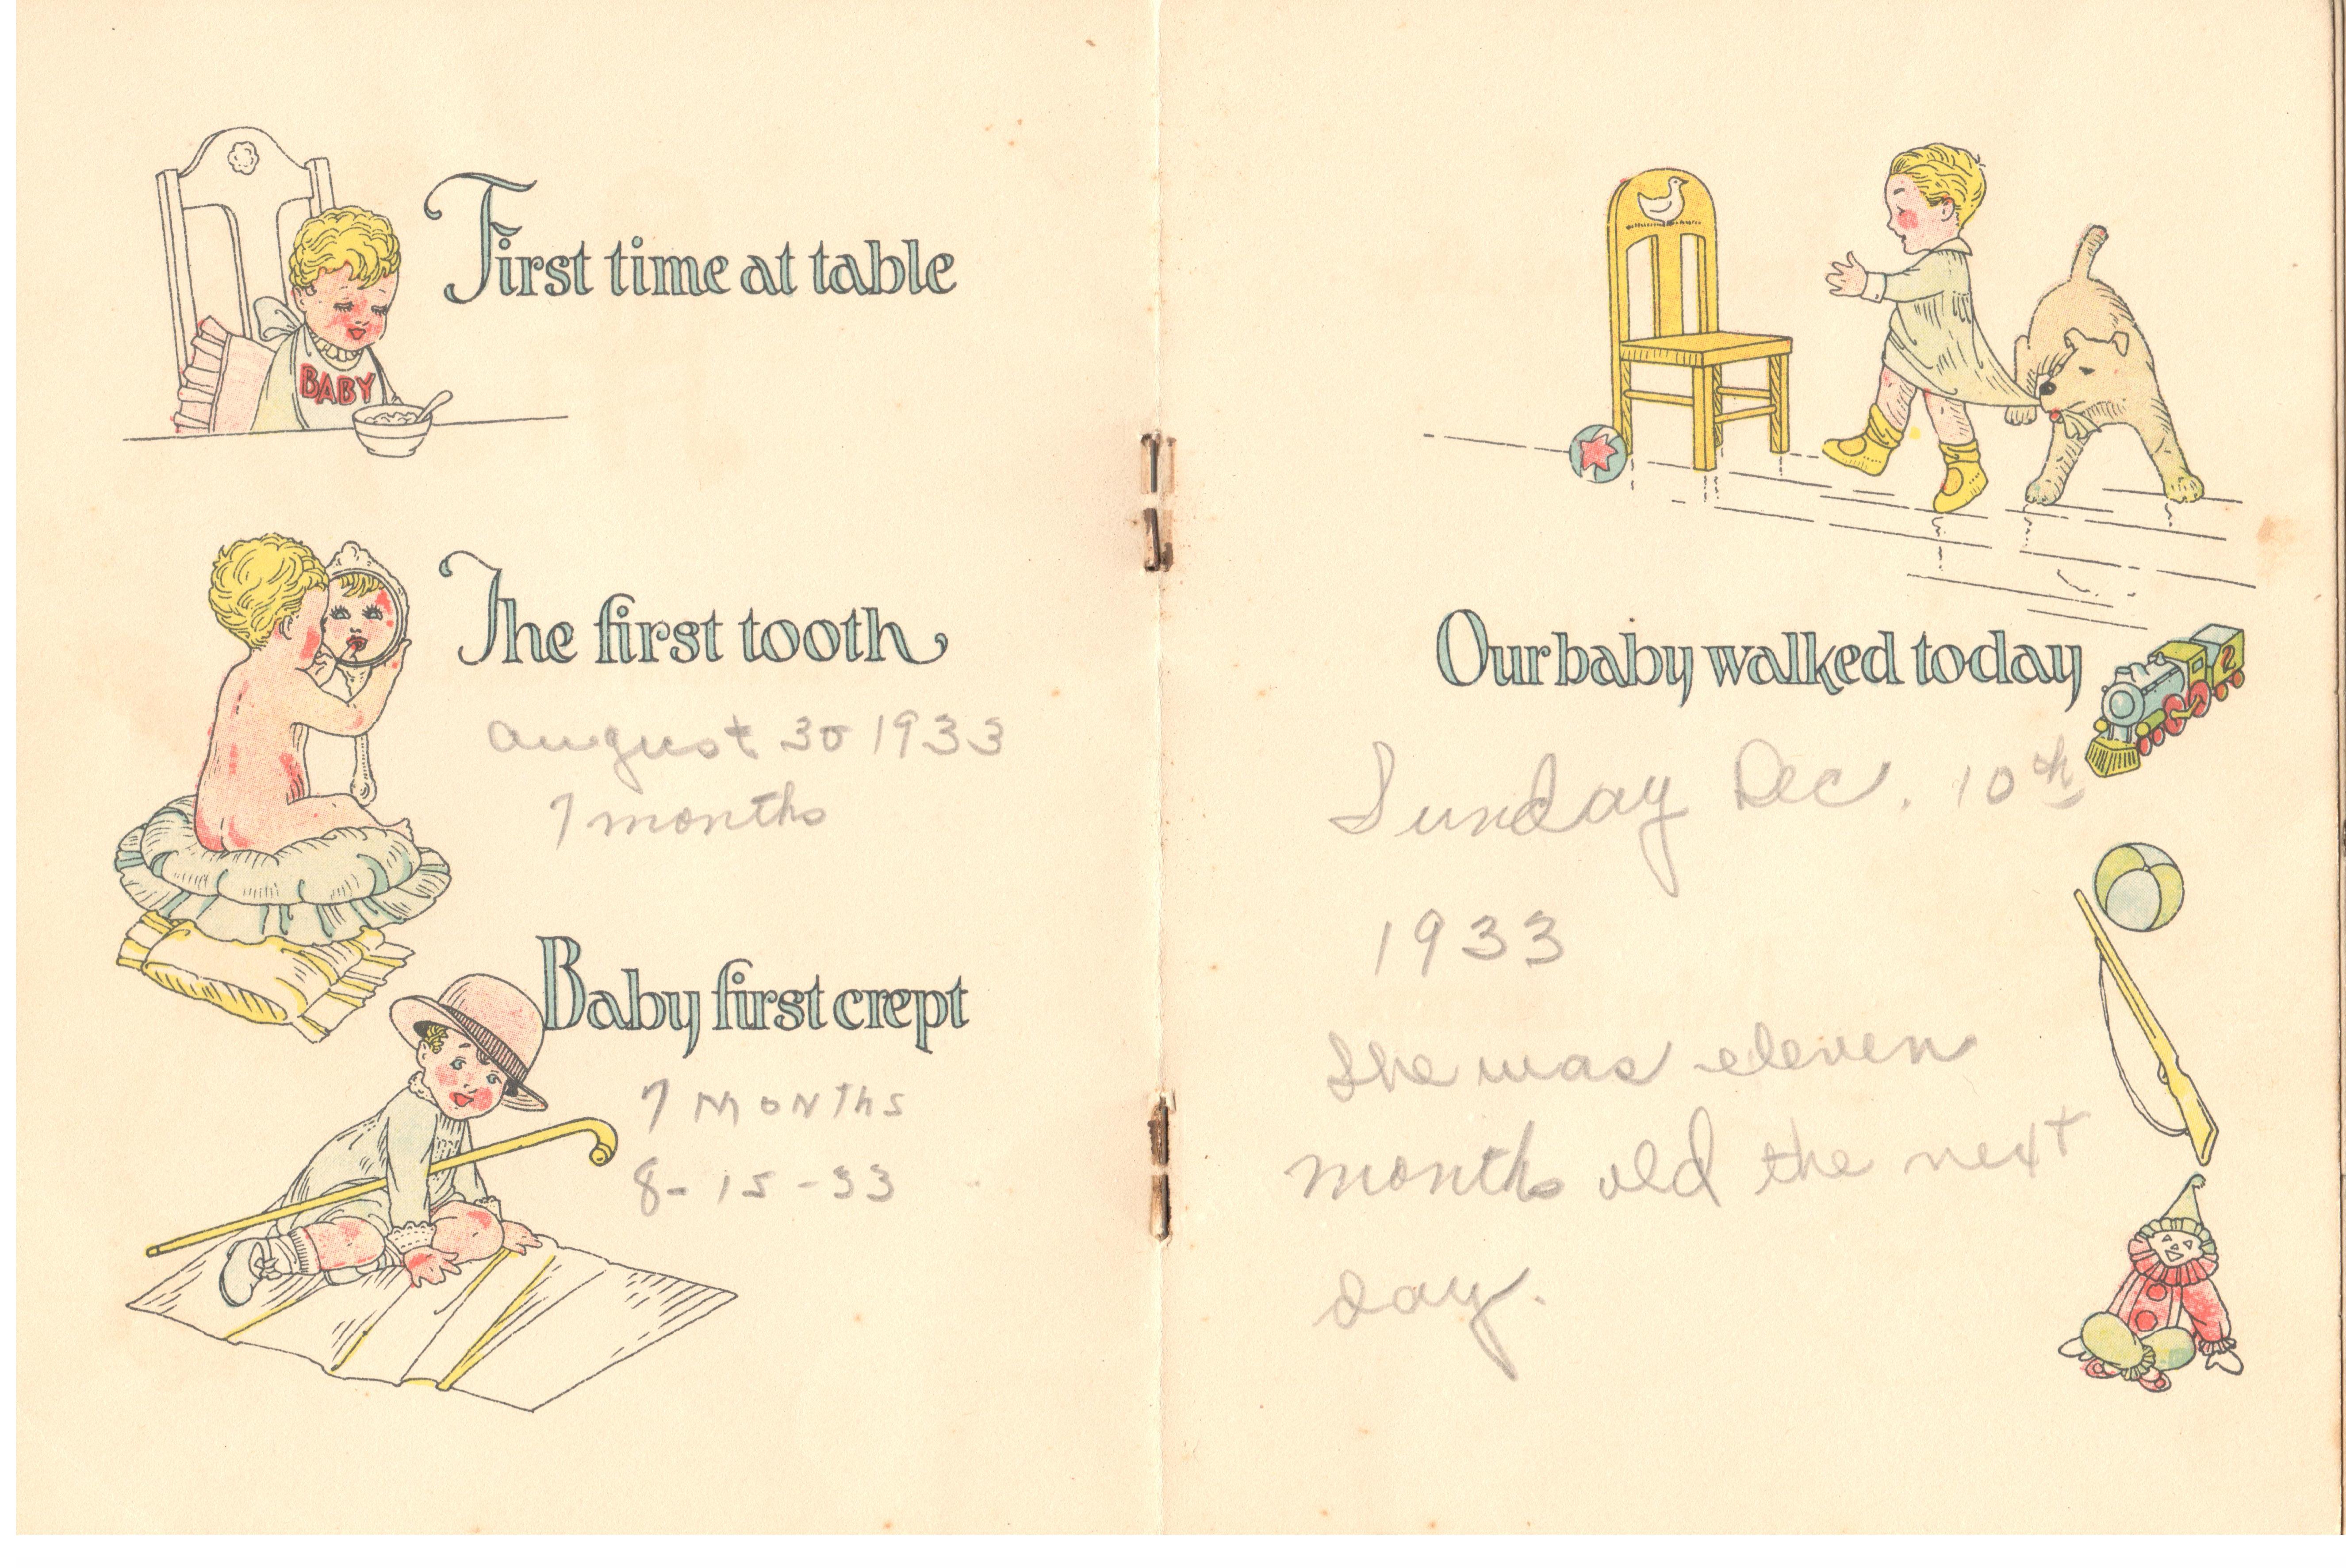 First time at table
BABY
The first tooth
august 30 1933
7 months
Baby first crept
7 MONThs
8-15-33
Our baby walked today
2
Sunday Dec. 10th
1933
She was eleven
months old the next
day.